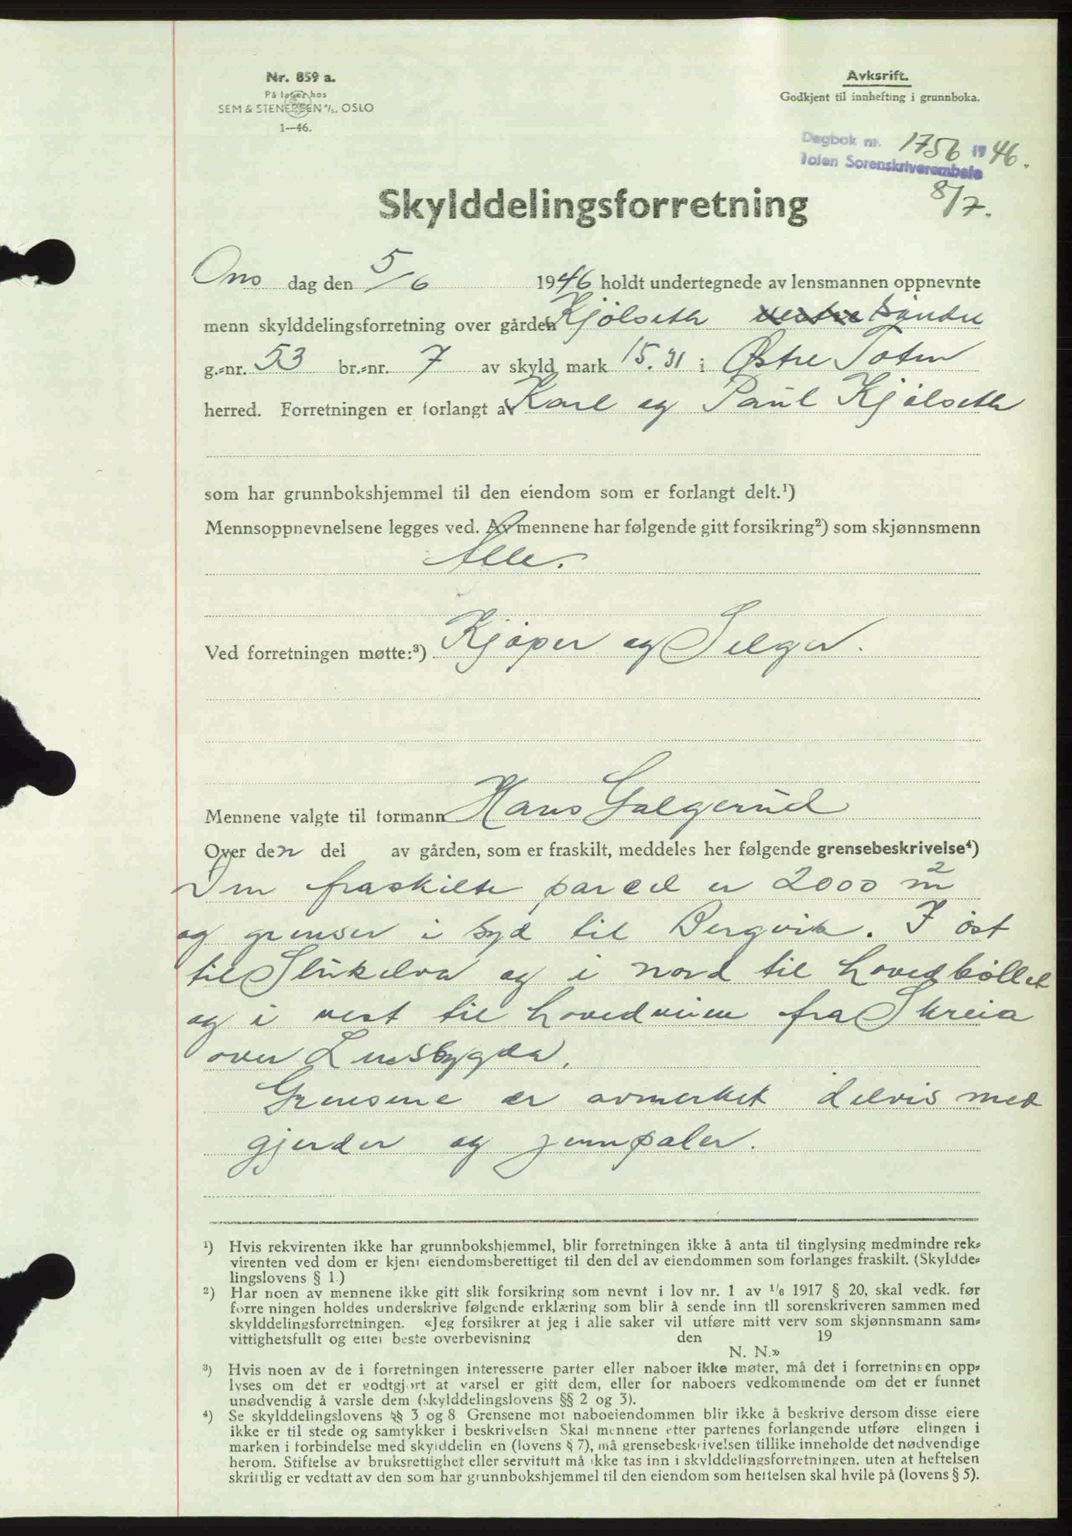 Nr. 859 a.
På lager hos
SEM & STENERSEN A/S, OSLO
1—46.
Avksrift.
Godkjent til innhefting i grunnboka.
Dagbok nr. 1756 1946.
Toten Sorenskriverembete
8/7.
Skylddelingsforretning
Ons dag den 5/6 1946 holdt undertegnede av lensmannen oppnevnte
menn skylddelingsforretning over gården Kjölseth vestre söndre
g.-nr. 53 br.-nr. 7 av skyld mark 15.31 i Østre Toten
herred. Forretningen er forlangt av Karl og Paul Kjölseth
som har grunnbokshjemmel til den eiendom som er forlangt delt.¹)
Mennsoppnevnelsene legges ved. Av mennene har følgende gitt forsikring²) som skjønnsmenn
Alle.
Ved forretningen møtte:³) Kjöper og Selger.
Mennene valgte til formann Hans Galgerud
Over den del av gården, som er fraskilt, meddeles her følgende grensebeskrivelse⁴)
Den fraskilte parcel er 2000 m²
og grenser i syd til Bergvik. I öst
til Slukelva og i nord til hovedbøllet
og i vest til hovedveien fra Skreia
over Lensbygda.
Grensene er avmerket delvis med
gjerder og jernpåler.
¹) Hvis rekvirenten ikke har grunnbokshjemmel, blir forretningen ikke å anta til tinglysing medmindre rek-
virenten ved dom er kjent eiendomsberettiget til den del av eiendommen som forlanges fraskilt. (Skyldde-
lingslovens § 1.)
²) Har noen av mennene ikke gitt slik forsikring som nevnt i lov nr. 1 av 1/6 1917 § 20, skal vedk. før
forretningen holdes underskrive følgende erklæring som blir å sende inn til sorenskriveren sammen med
skylddelingsforretningen. «Jeg forsikrer at jeg i alle saker vil utføre mitt verv som skjønnsmann sam-
vittighetsfullt og etter beste overbevisning den 19
N. N.»
³) Hvis noen av de i forretningen interesserte parter eller naboer ikke møter, må det i forretningen opp-
lyses om det er godtgjort at varsel er gitt dem, eller for naboers vedkommende om det er funnet
unødvendig å varsle dem (skylddelingslovens §§ 2 og 3).
⁴) Se skylddelingslovens §§ 3 og 8 Grensene mot naboeiendommen blir ikke å beskrive dersom disse eiere
ikke er til stede og samtykker i beskrivelsen Skal mennene etter partenes forlangende utføre delingen i
marken i forbindelse med skylddelingen (lovens § 7), må grensebeskrivelsen tillike inneholde det nødvendige
herom. Stiftelse av bruksrettighet eller servitutt må ikke tas inn i skylddelingsforretningen, uten at heftelsen
skriftlig er vedtatt av den som har grunnbokshjemmel til den eiendom som heftelsen skal hvile på (lovens § 5).